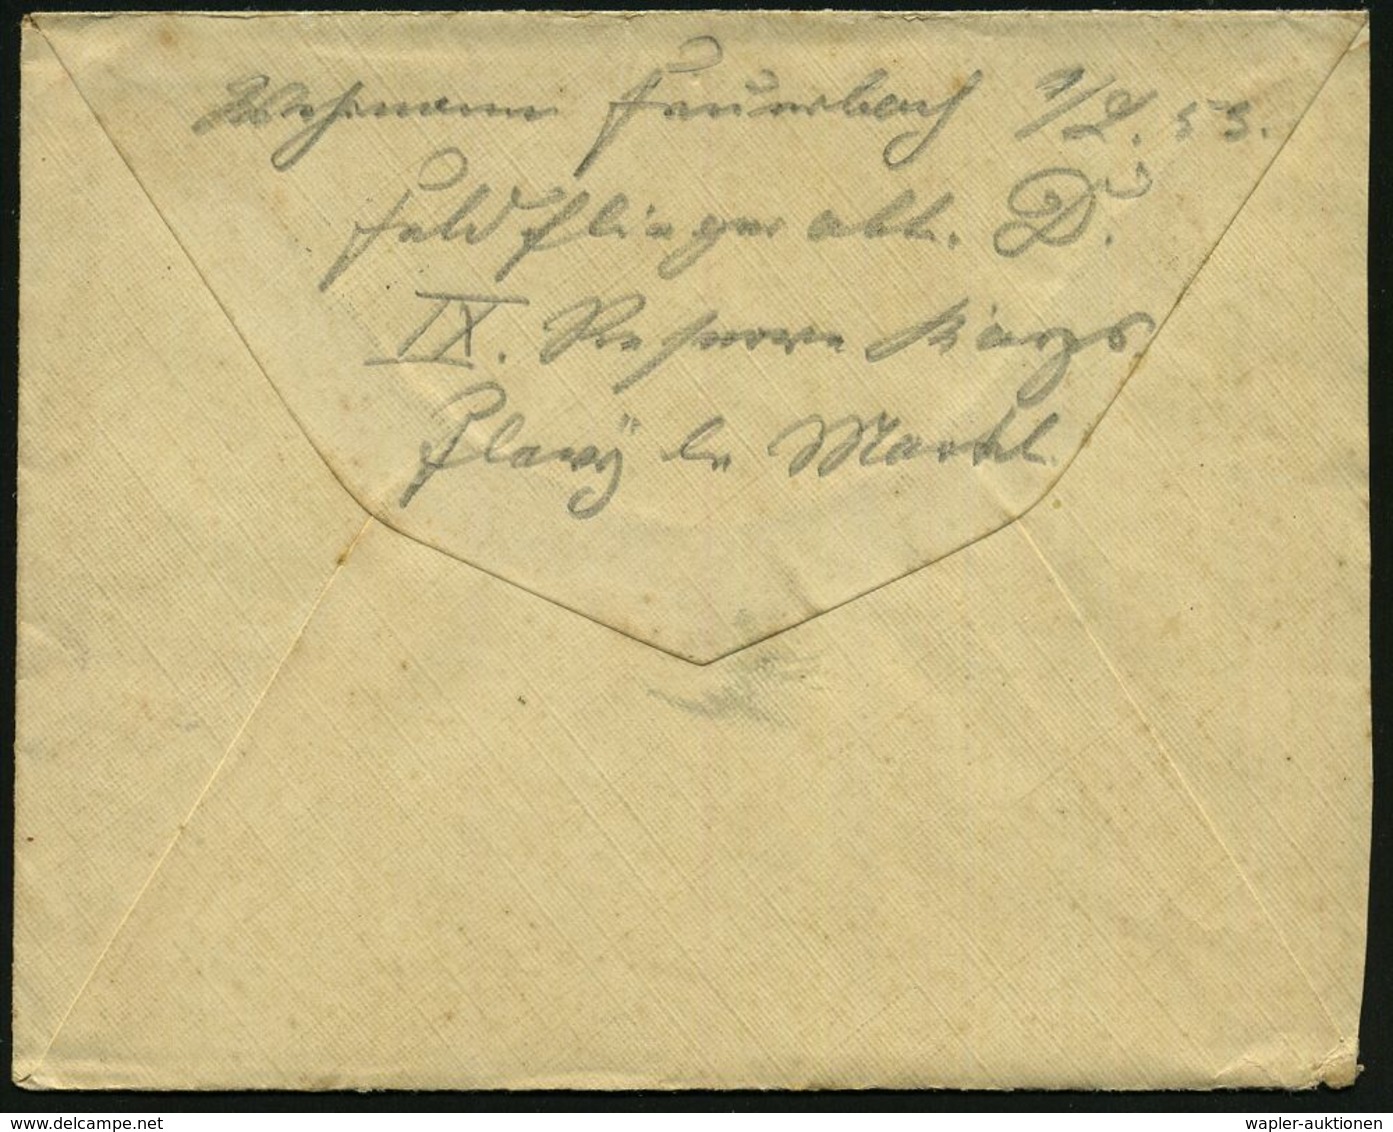 Wehrmann Feuerbach 1/L. 53.
Feldfliegerabt. D.
IX. Reserve Korps
Flavÿ le Martel.
www.delcampe.net
wapler-auktionen